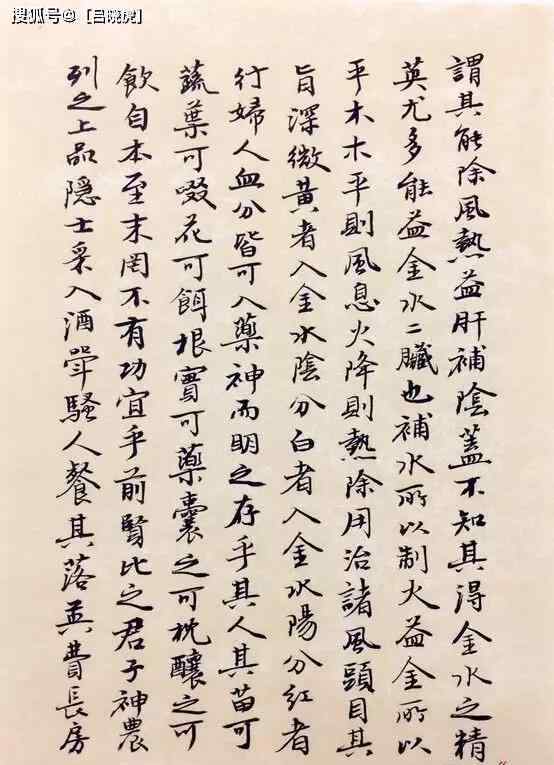 搜狐号@【吕晓虎】
謂其能除風熱益肝補陰蓋不知其得金水之精
英尤多能益金水二臟也補水所以制火益金所以
平木木平則風息火降則熱除用治諸風頭目其
旨深微黄者入金水陰分白者入金水陽分紅者
行婦人血分皆可入藥神而明之存乎其人其苗可
蔬葉可啜花可餌根實可藥囊之可枕釀之可
飲自本至末罔不有功宜乎前賢比之君子神農
列之上品隱士采入酒斝騷人餐其落英費長房